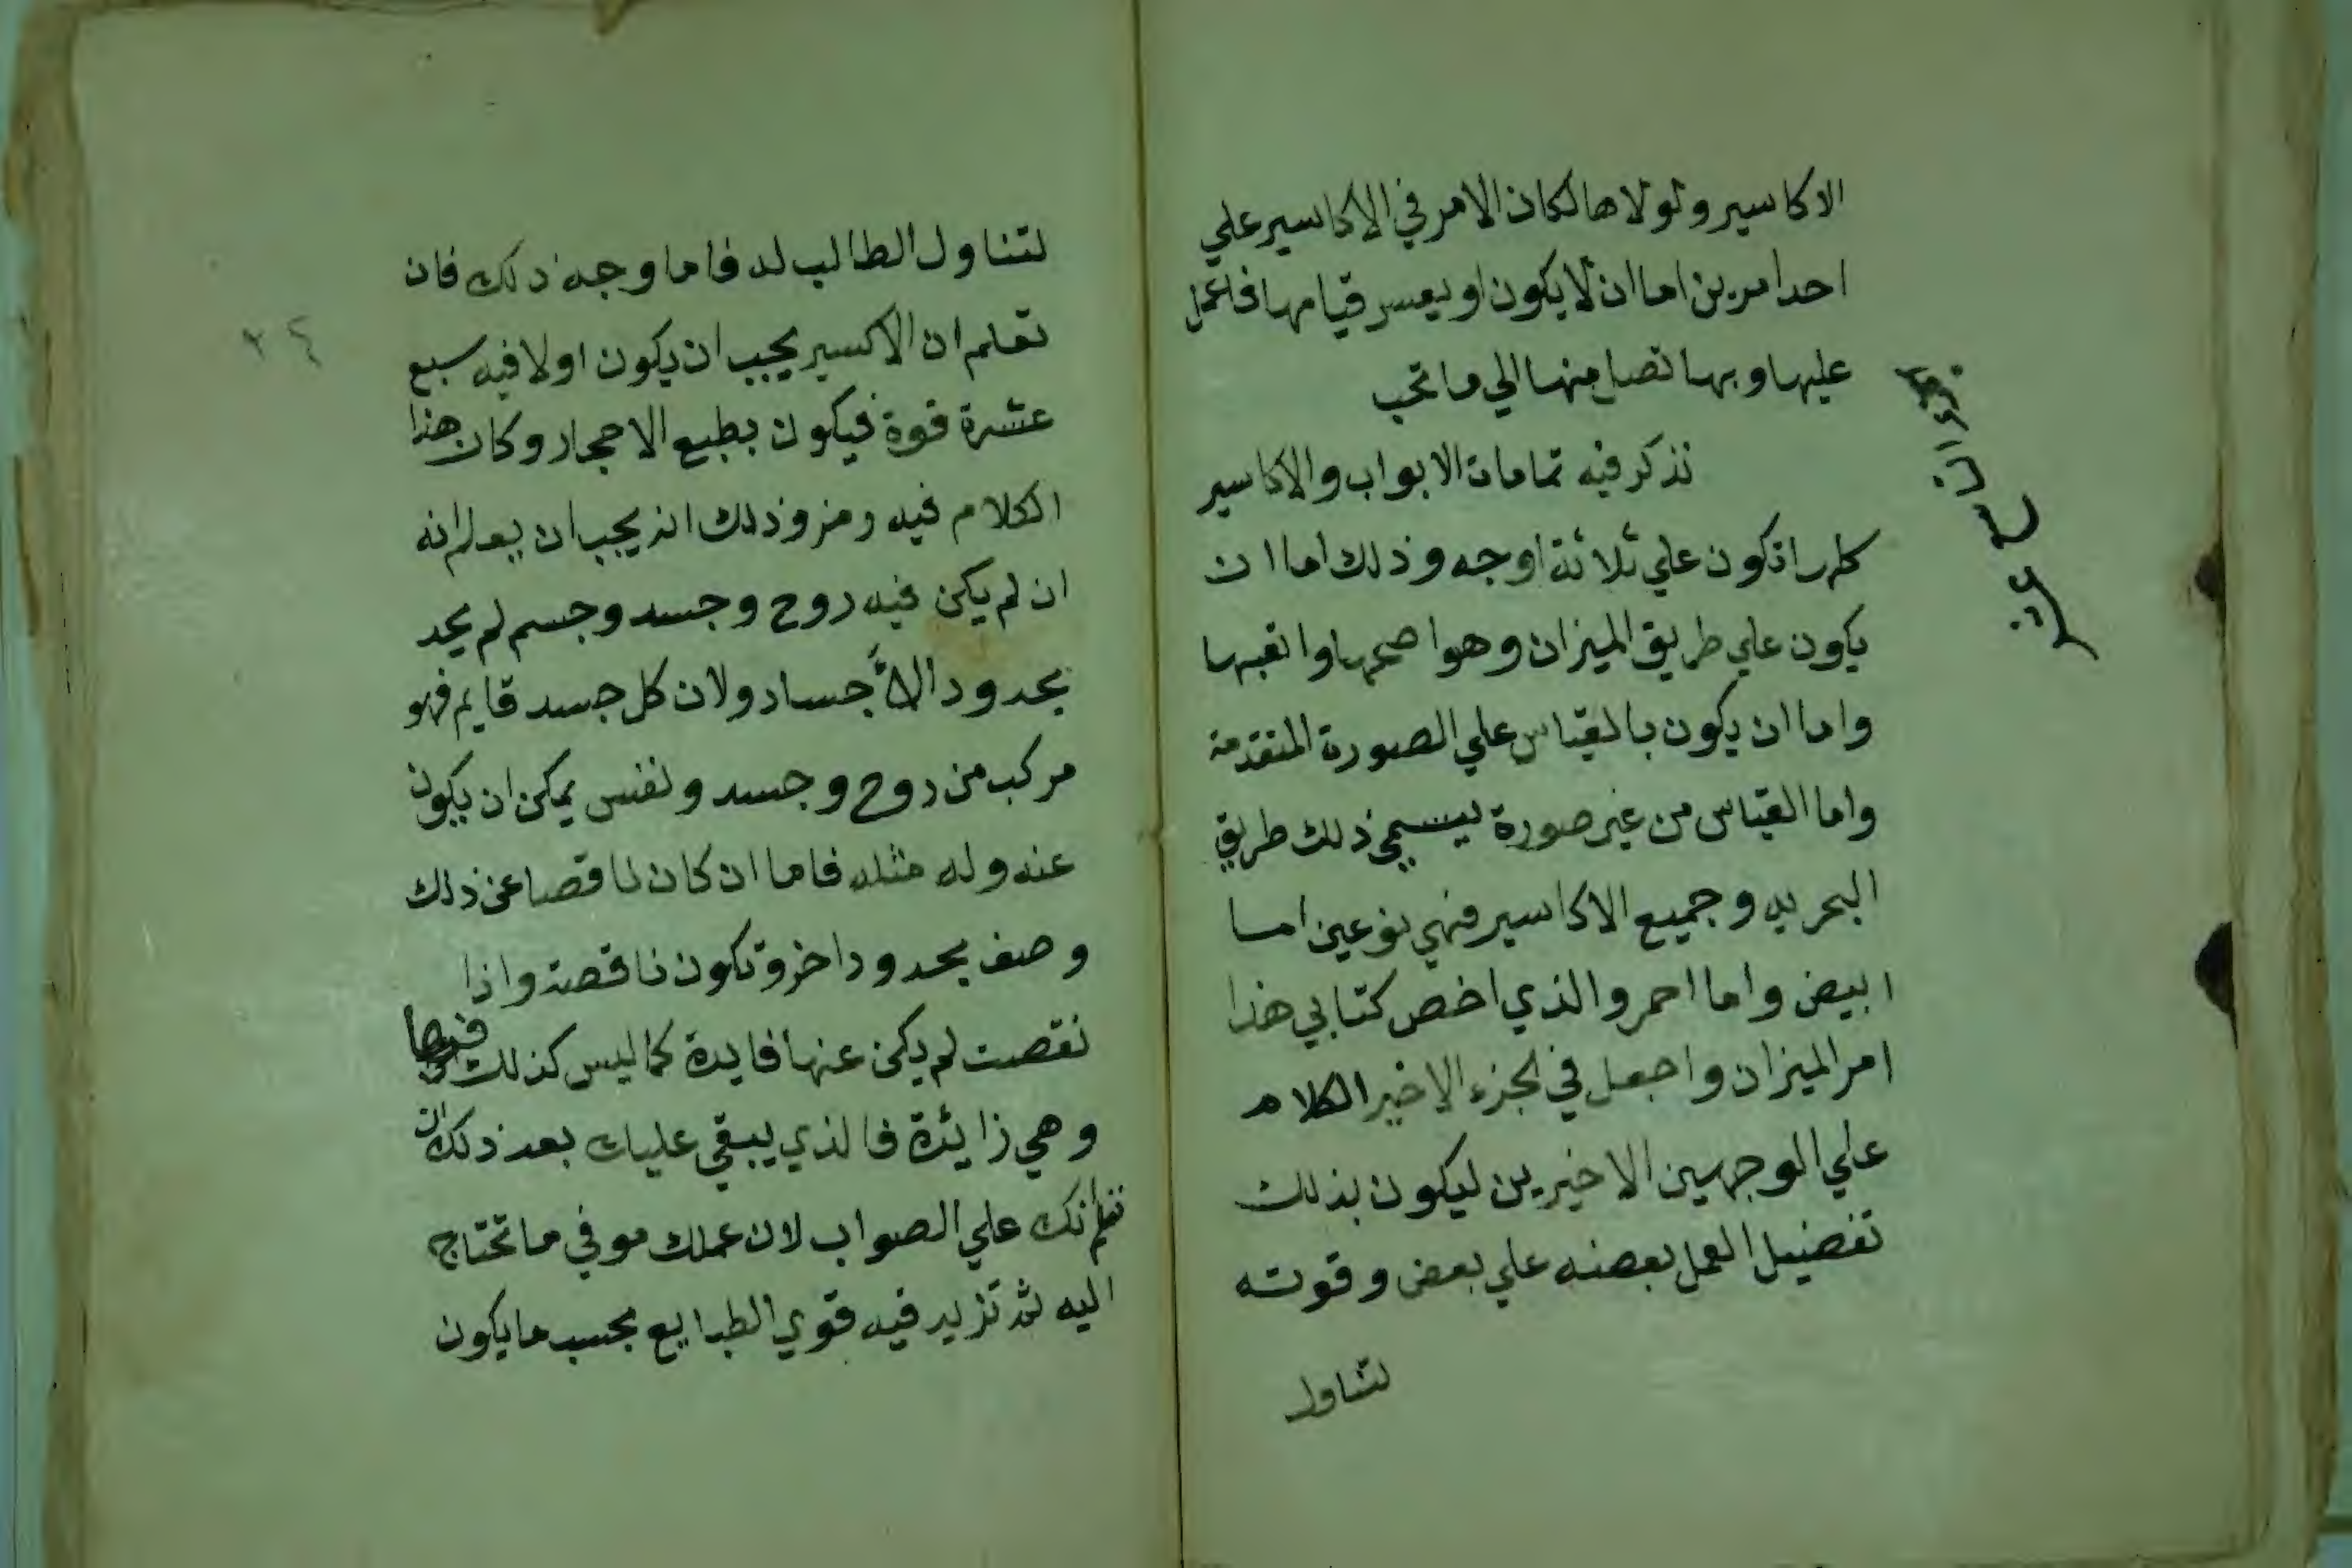 الاكاسير ولولاها لكان الامر في الاكاسير علي
احد امرين اما ان لا يكون او يعسر قيامها فاعمل
عليها وبها تصل منها الي ما تحب
نذكر فيه تمامات الابواب والاكاسير
كلها تكون علي ثلاثة اوجه وذلك اما ان
يكون علي طريق الميزان وهو اصحها واتعبها
واما ان يكون بالقياس علي الصورة المتقدمة
واما القياس من غير صورة يسمي ذلك طريق
البحريه وجميع الاكاسير فهي نوعين اما
ابيض واما احمر والذي اخص كتابي هذا
امر الميزان واجعل في الجزء الاخير الكلام
علي الوجهين الاخيرين ليكون بذلك
تفضيل العمل بعضه علي بعض وقوته
لتناول
لتناول الطالب له فاما وجه ذلك فان
تعلم ان الاكسير يجب ان يكون اولا فيه سبع
عشرة قوة فيكون بطبع الاحجار وكان هذا
الكلام فيه رمز وذلك انه يجب ان يعلم انه
ان لم يكن فيه روح وجسد وجسم لم يحد
بحدود الأجساد ولان كل جسد قايم فهو
مركب من روح وجسد ونفس يمكن ان يكون
عنه وله مثله فاما ان كان ناقصا عن ذلك
وصف بحدود اخر وتكون ناقصة واذا
نقصت لم يكن عنها فايدة كما ليس كذلك فيها
وهي زايدة فالذي يبقي عليك بعد ذلك ان
تعلم انك علي الصواب لان عملك موفي ما تحتاج
اليه ثم تزيد فيه قوي الطبايع بحسب ما يكون
٢٤